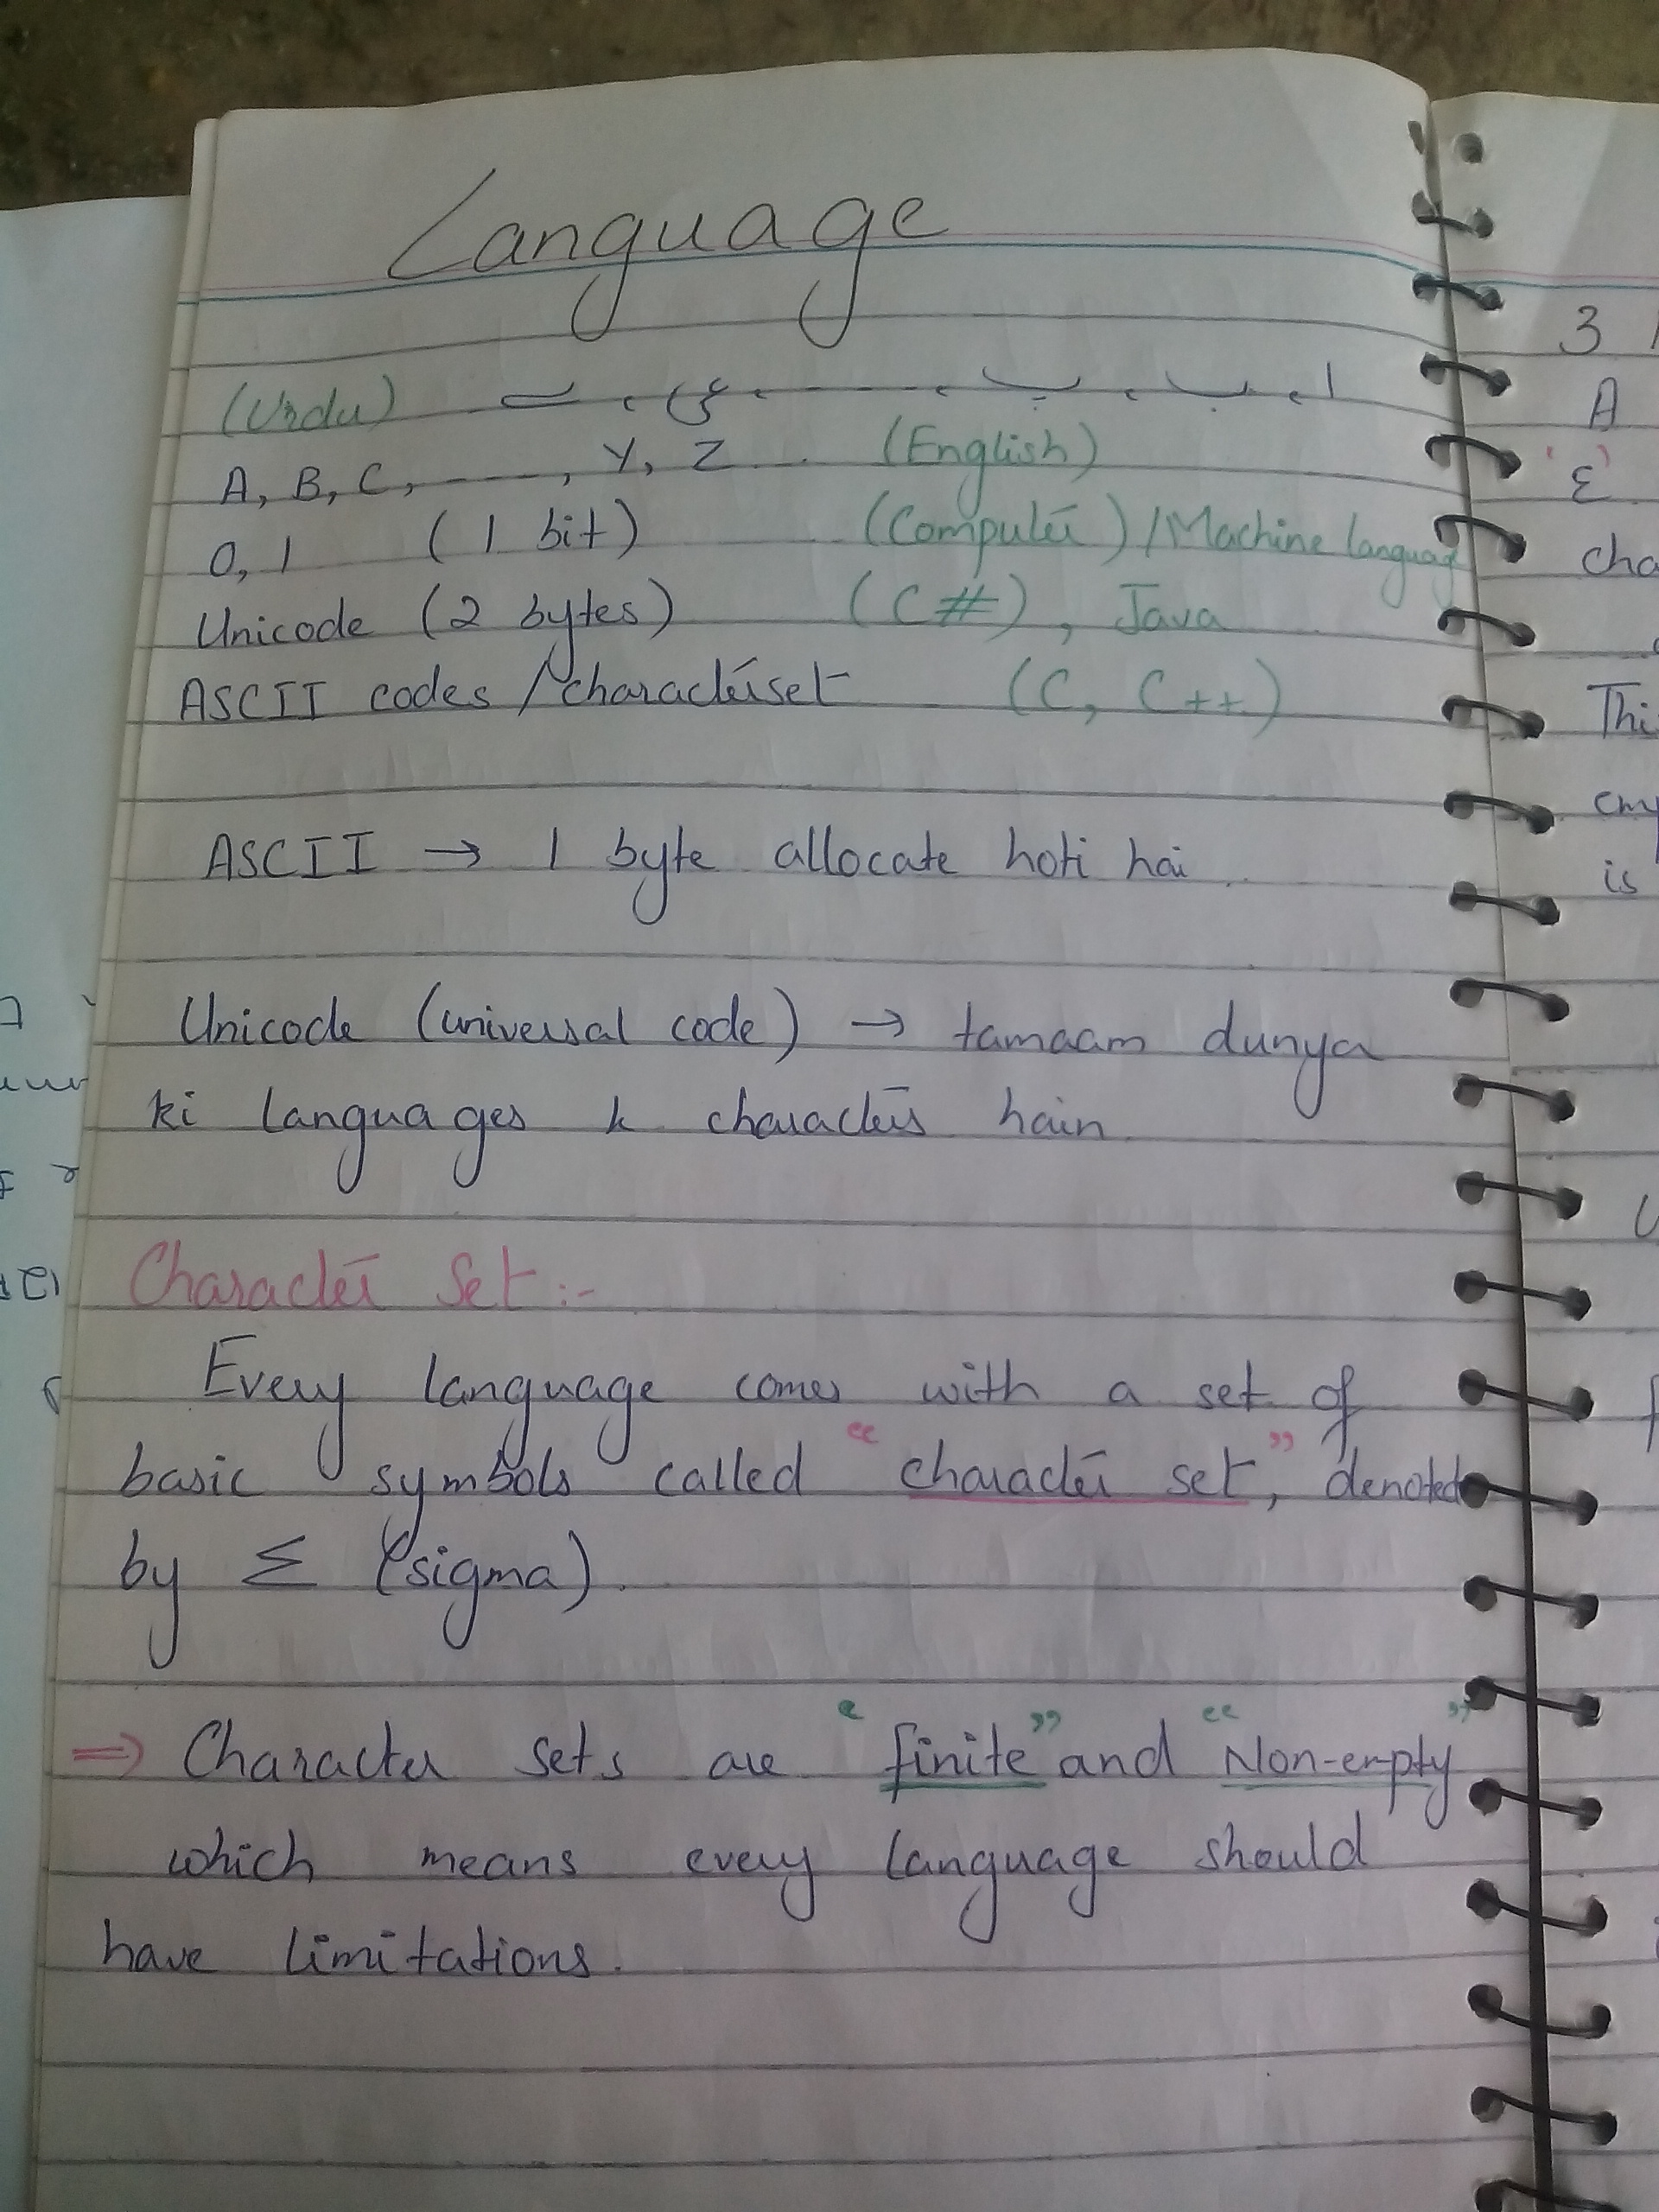 Language
(Urdu) ا ، ب ، پ ، ----- ، ی ، ے
A, B, C, ----, Y, Z (English)
0, 1 (1 bit) (Computer) / Machine language
Unicode (2 bytes) (C#), Java
ASCII codes / characterset (C, C++)
ASCII → 1 byte allocate hoti hai
Unicode (universal code) → tamaam dunya
ki languages k characters hain
Character Set :-
Every language comes with a set of
basic symbols called "character set", denoted
by Σ (sigma).
⇒ Character sets are "finite" and "Non-empty"
which means every language should
have limitations.
3
A
'ε'
is